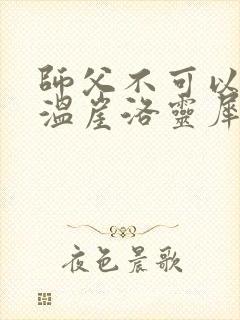 師父不可以
溫崖洛靈犀
夜色晨歌